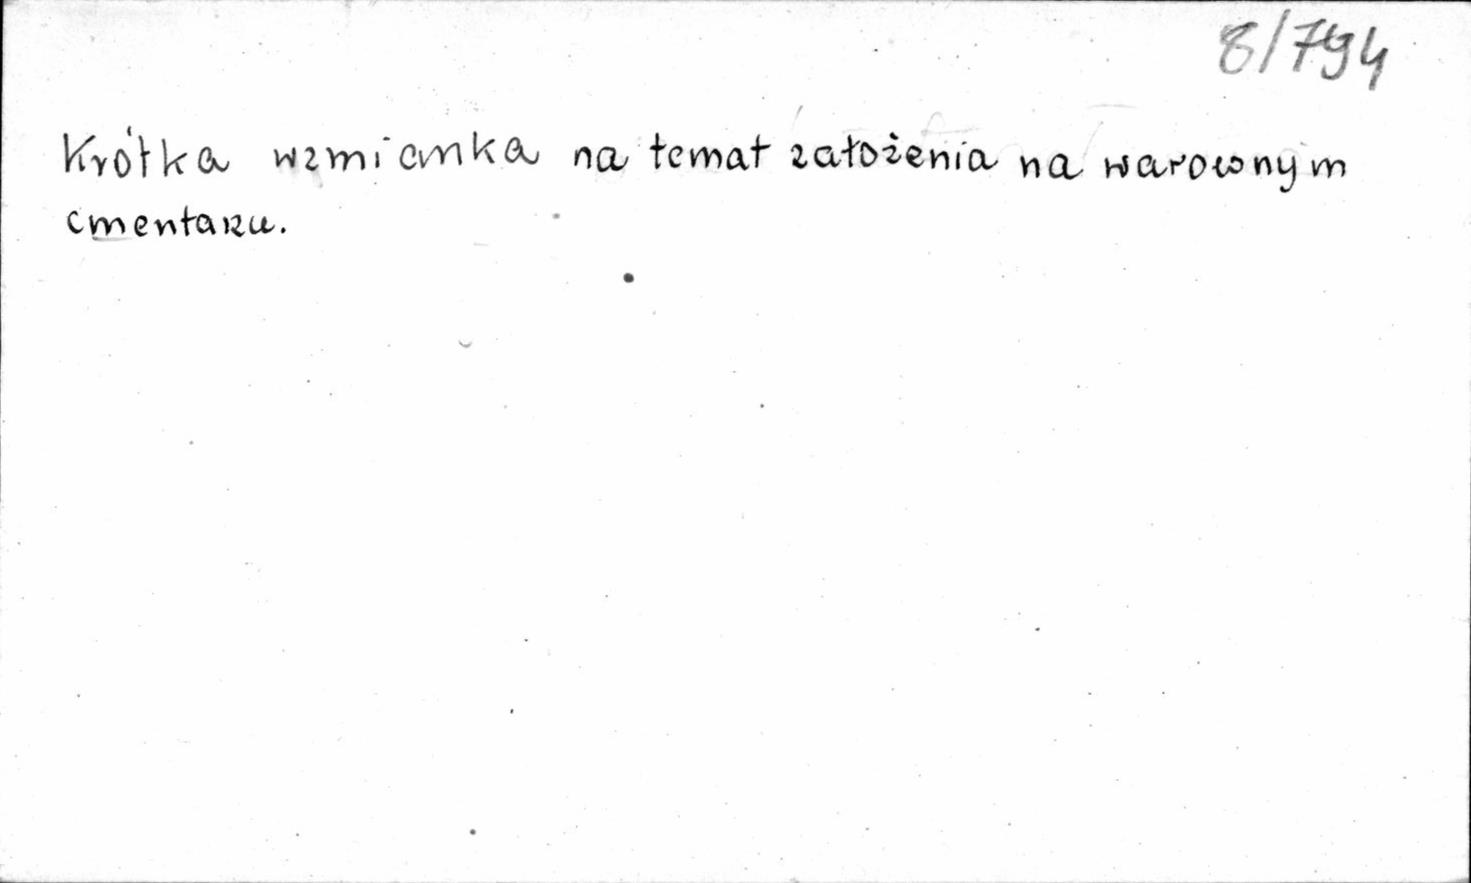 8/794
Krótka wzmianka na temat założenia na warownym
cmentarzu.